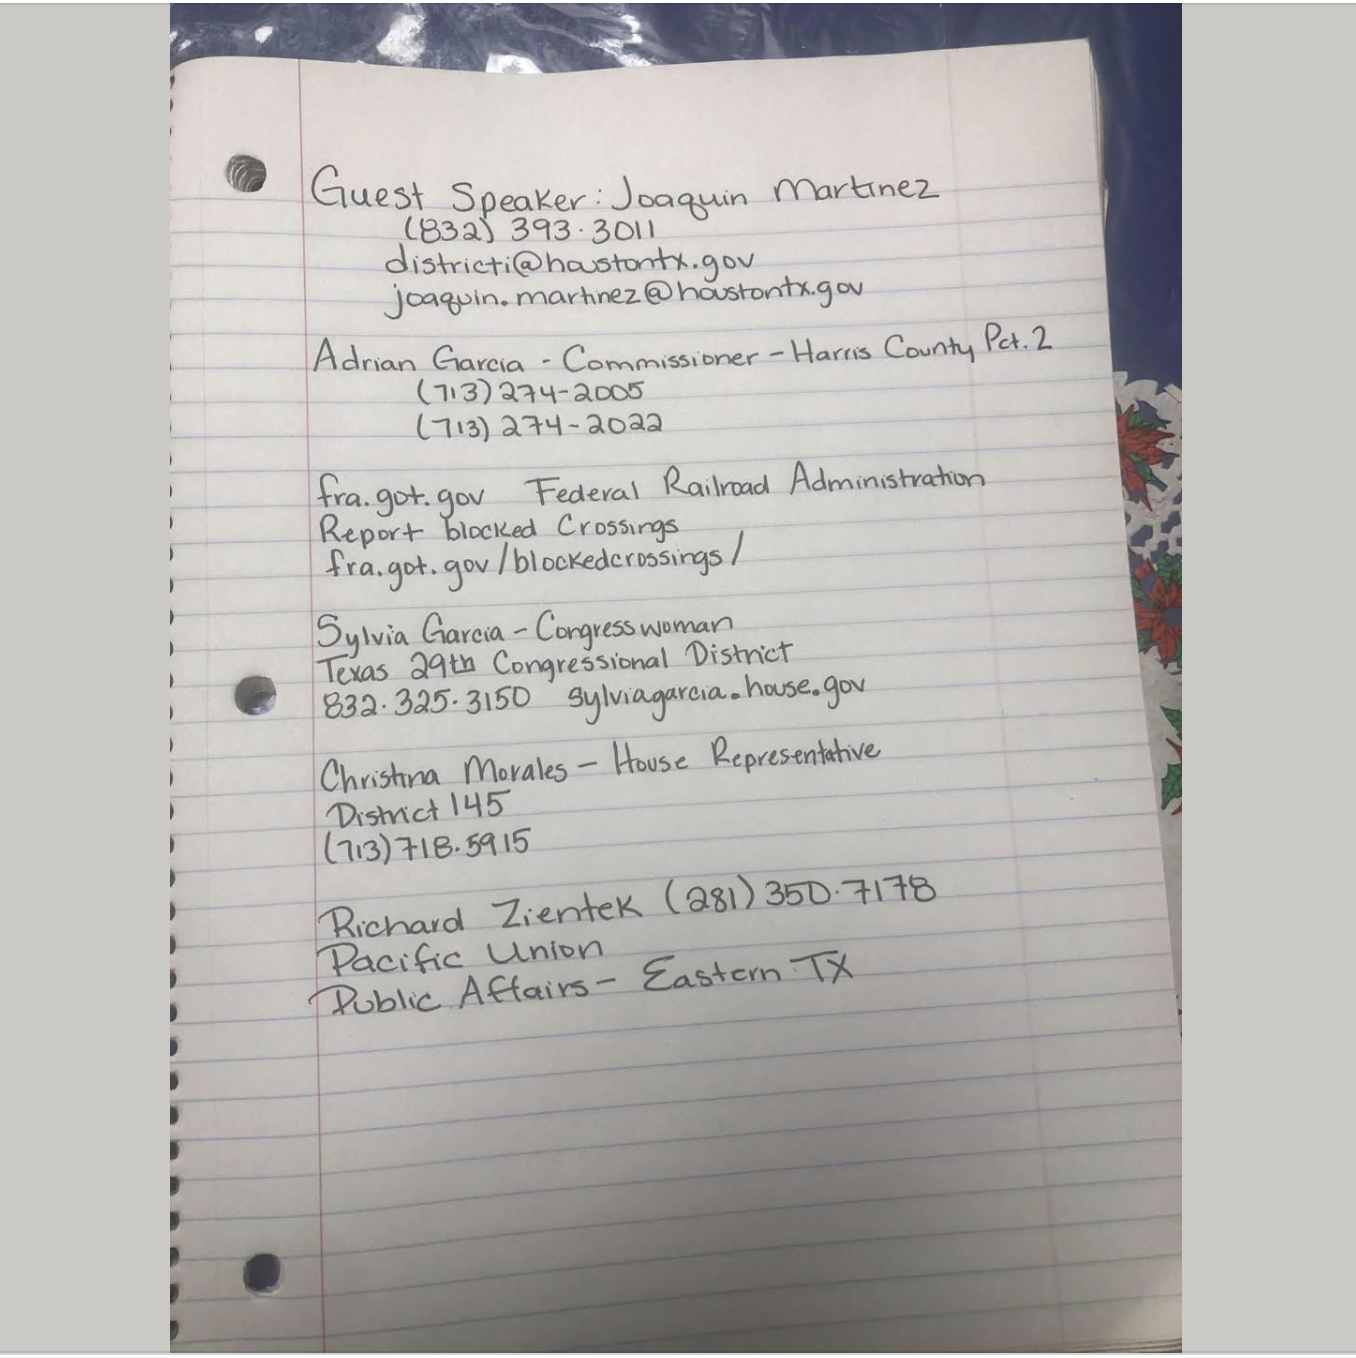 Guest Speaker: Joaquin Martinez
(832) 393.3011
districti@houstontx.gov
joaquin.martinez@houstontx.gov
Adrian Garcia - Commissioner - Harris County Pct. 2
(713) 274-2005
(713) 274-2022
fra.got.gov Federal Railroad Administration
Report blocked Crossings
fra.got.gov/blockedcrossings/
Sylvia Garcia - Congresswoman
Texas 29th Congressional District
832.325.3150 sylviagarcia.house.gov
Christina Morales - House Representative
District 145
(713) 718.5915
Richard Zientek (281) 350.7178
Pacific Union
Public Affairs - Eastern TX